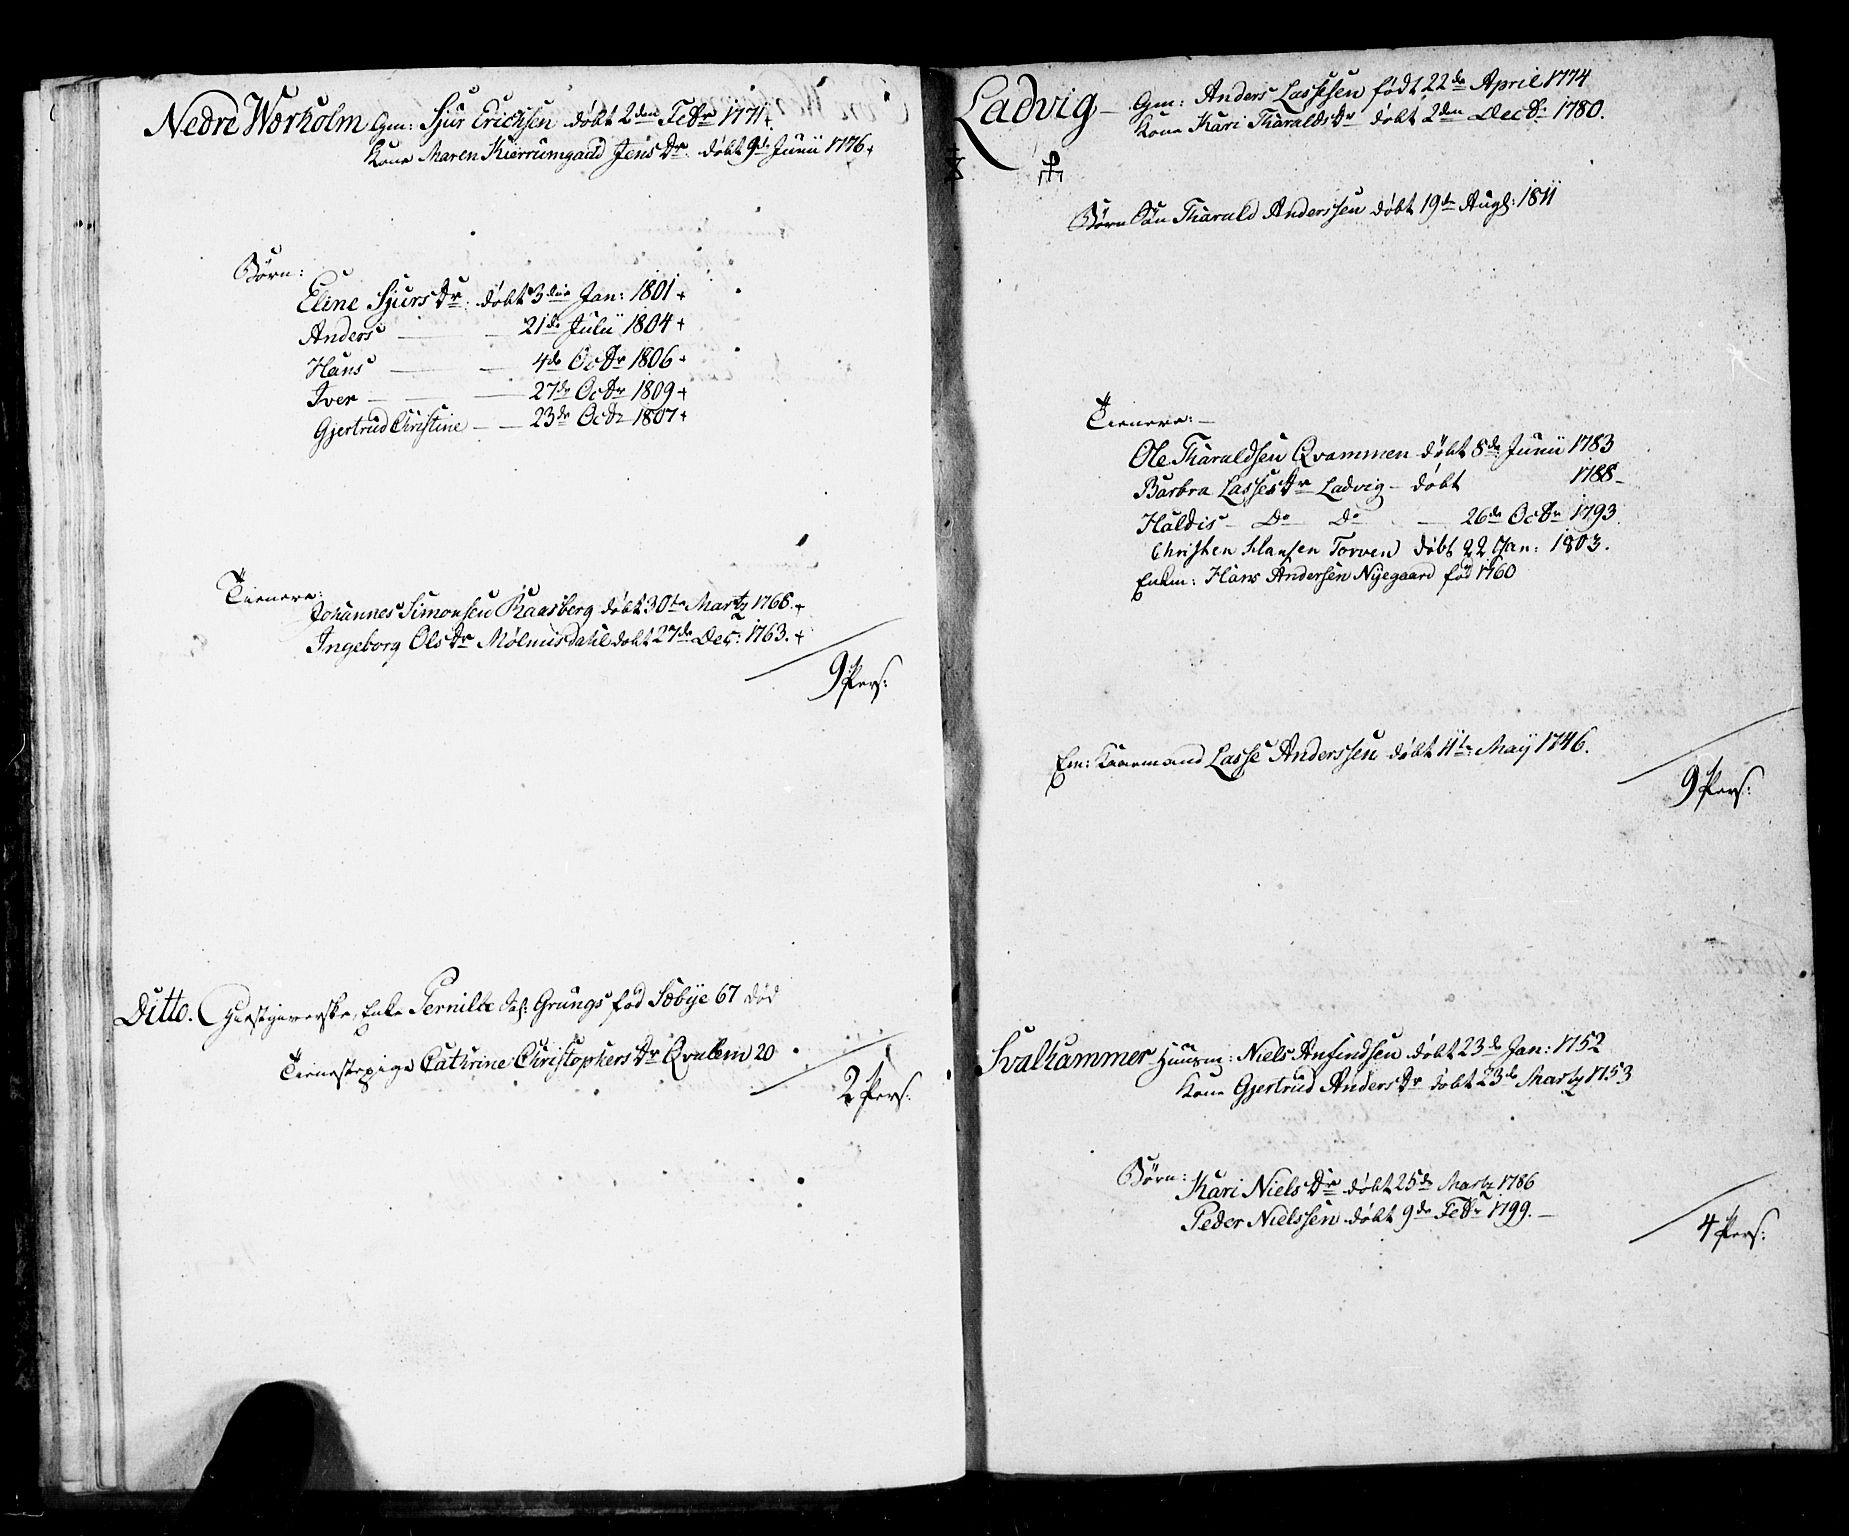 Nedre Wærholm Gm: Sjur Ericksen døbt 2den Febr 1771+
Kone Maren Kierrumgaad Jens Dr. døbt 9de Junii 1776+
Børn:
Eline Sjurs Dr. døbt 3die Jan: 1801+
Anders — — 21de Julii 1804+
Hans — — 4de Octbr 1806+
Iver — — 27de Octbr 1809+
Gjertrud Christine — — 23de Octr 1807+
Tienere:
Johannes Simonsen Raasberg døbt 30te Martz 1768.+
Ingeborg Ols Dr Mølmisdahl døbt 27de Dec: 1763.+
9 Pers:
Ditto. Giestgiverske, Enke Pernille Grungs fød Sæbye 67 død
Tienestepige Cathrine Christophers Dr Qvalem 20
2 Pers:
Ladvig — Gm: Anders Lassesen født 22de April 1774
Kone Kari Tharalds Dr døbt 2den Decbr 1780.
Børn Søn Tharald Anderssen døbt 19de Augs: 1811
Tienere: —
Ole Tharaldsen Qvammen døbt 8de Junii 1783
Barbra Lasses Dr Ladvig — døbt 1788 —
Haldis — Do Do — 26de Octbr 1793.
Christen Hansen Torven døbt 22 Jan: 1803.
Enkm: Hans Andersen Nyegaard fød 1760
Em: Kaarmand Lasse Anderssen døbt 11te Maÿ 1746.
9 Pers:
Svalhammer Huusm: Niels Anfindsen døbt 23de Jan: 1752
Kone Gjertrud Anders Dr døbt 23de Martz 1753
Børn:
Kari Niels Dr døbt 25de Martz 1786
Peder Nielssen døbt 9de Febr 1799. —
4 Pers: